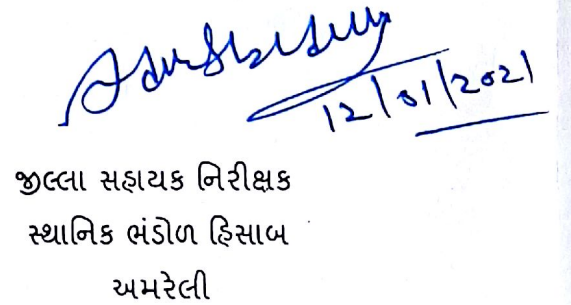 12/01/2021
જીલ્લા સહાયક નિરીક્ષક
સ્થાનિક ભંડોળ હિસાબ
અમરેલી